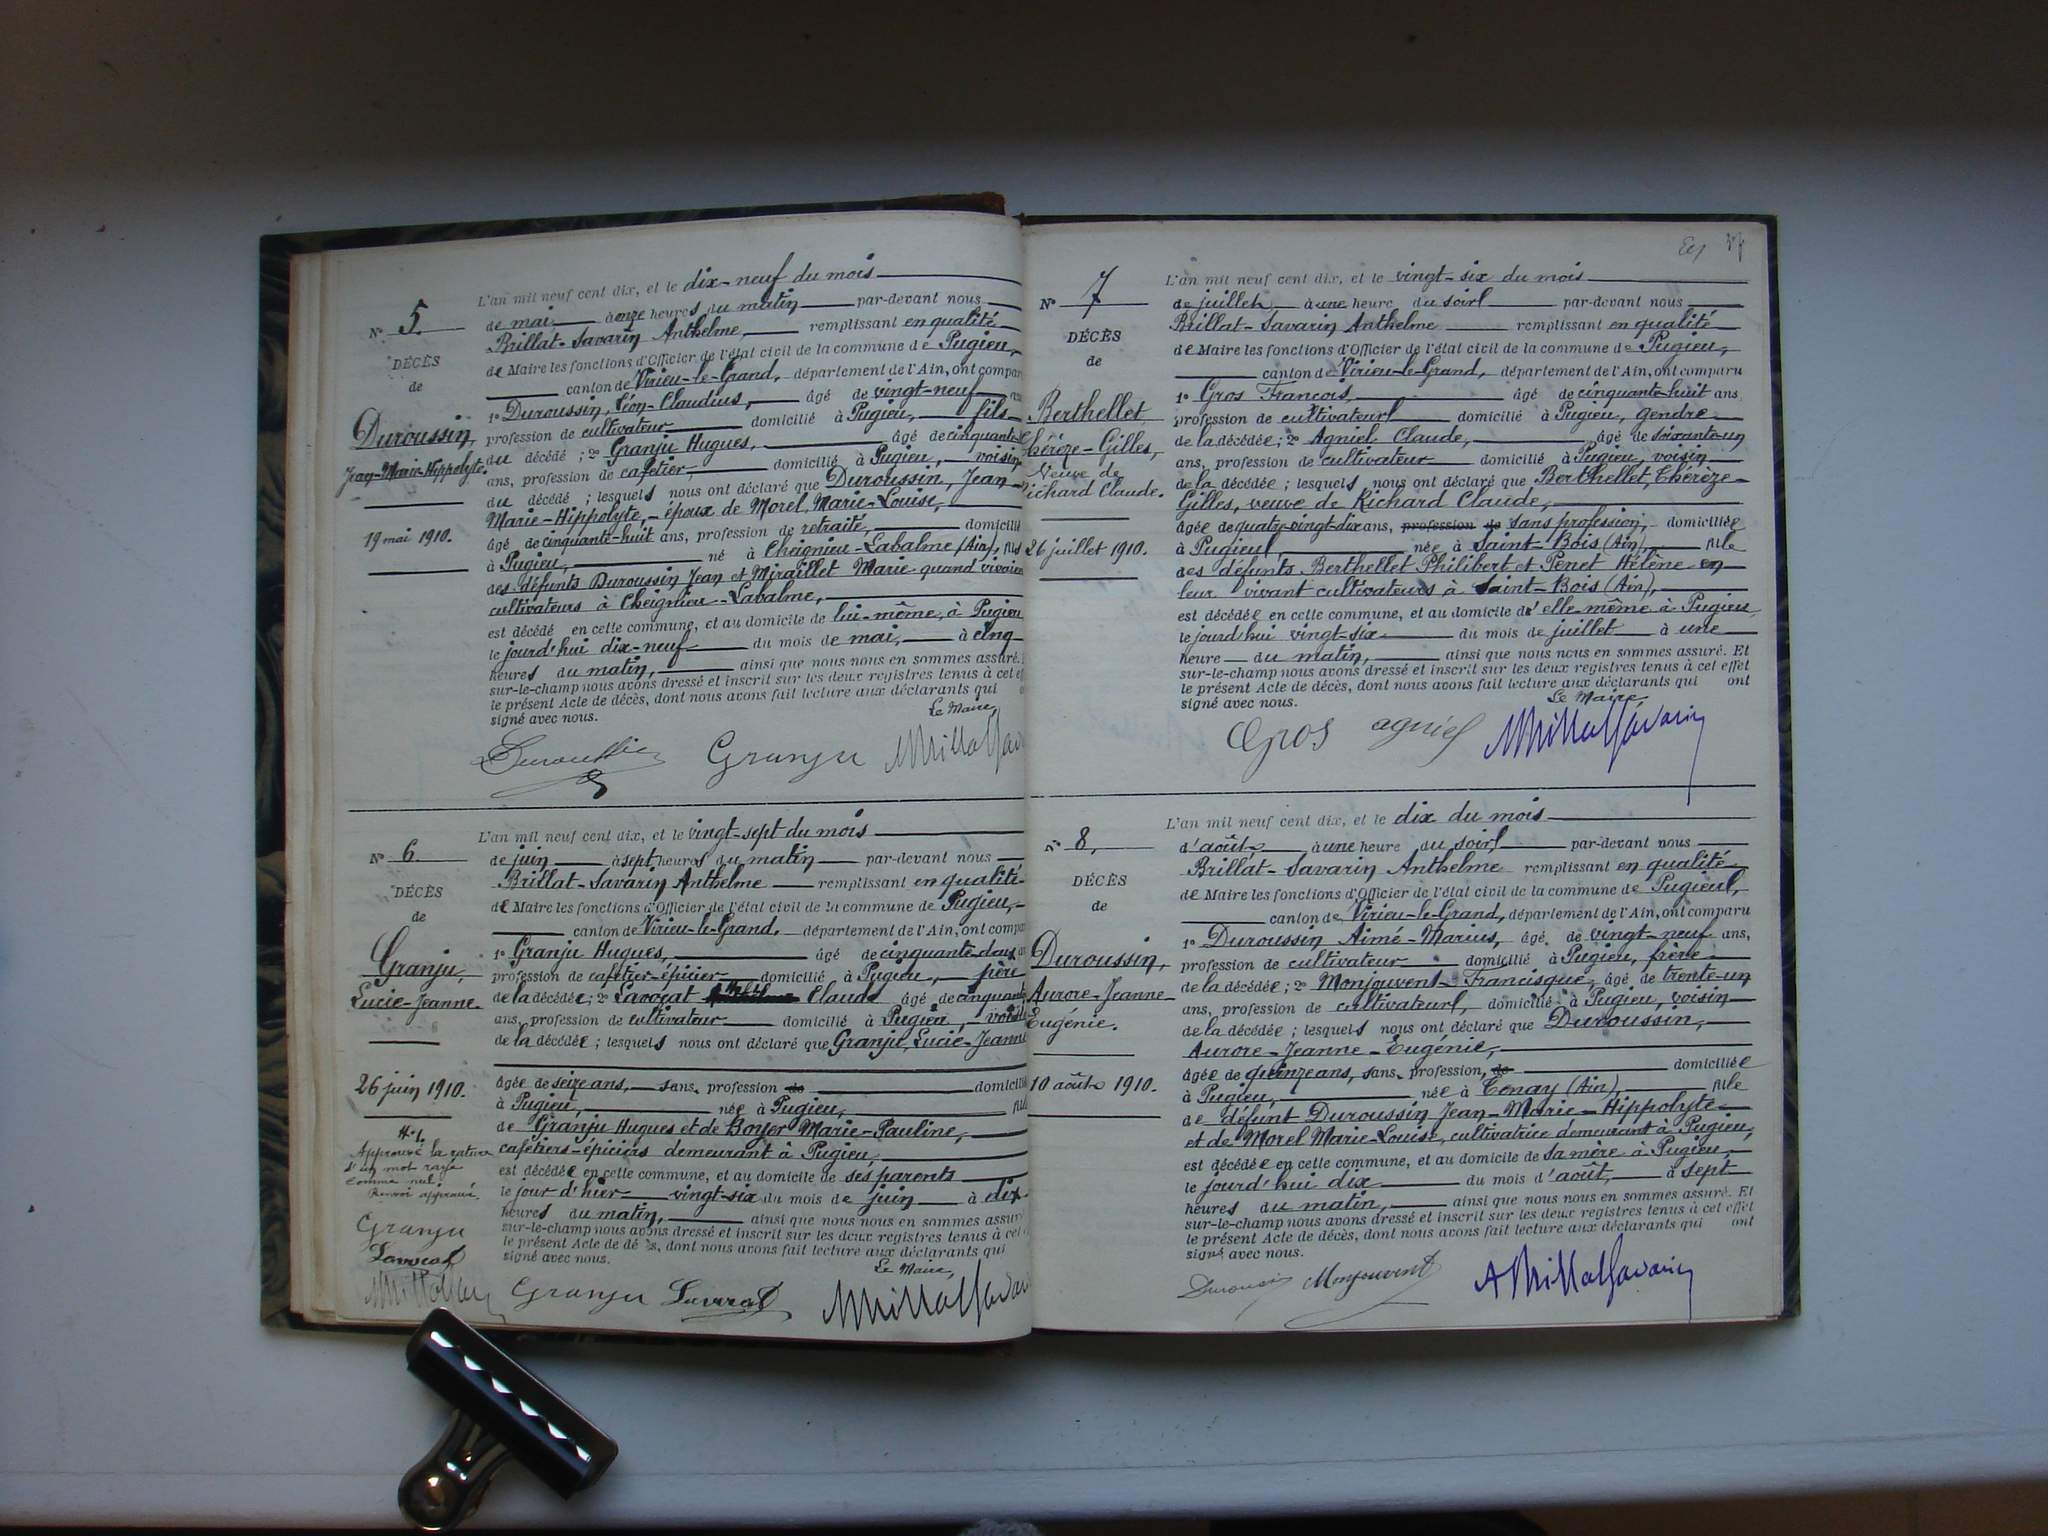 L'an mil neuf cent dix, et le dix-neuf du mois
N° 5.
de mai à onze heures du matin par-devant nous
Brillat-Savarin Anthelme remplissant en qualité
DÉCÈS
de
de Maire les fonctions d'Officier de l'état civil de la commune de Pugieu,
canton de Virieu-le-Grand, département de l'Ain, ont comparu
Duroussin,
Jean-Marie-Hippolyte.
19 mai 1910.
1° Duroussin, Léon-Claudius, âgé de vingt-neuf
profession de cultivateur domicilié à Pugieu, fils
du décédé ; 2° Granju Hugues, âgé de cinquante
ans, profession de cafetier domicilié à Pugieu, voisin
du décédé ; lesquels nous ont déclaré que Duroussin, Jean
Marie-Hippolyte, époux de Morel, Marie-Louise,
âgé de cinquante-huit ans, profession de retraité, domicilié
à Pugieu, né à Cheignieu-Labalme (Ain), fils
des défunts Duroussin Jean et Miraillet Marie quand vivaient
cultivateurs à Cheignieu-Labalme,
est décédé en cette commune, et au domicile de lui-même, à Pugieu
le jourd'hui dix-neuf du mois de mai, à cinq
heures du matin, ainsi que nous nous en sommes assuré.
sur-le-champ nous avons dressé et inscrit sur les deux registres tenus à cet
le présent Acte de décès, dont nous avons fait lecture aux déclarants qui
signé avec nous.
Le Maire,
Duroussin Granju ABrillatSavarin
L'an mil neuf cent dix, et le vingt-sept du mois
N° 6.
de juin à sept heures du matin par-devant nous
Brillat-Savarin Anthelme remplissant en qualité
DÉCÈS
de
de Maire les fonctions d'Officier de l'état civil de la commune de Pugieu,
canton de Virieu-le-Grand, département de l'Ain, ont comparu
Granju,
Lucie-Jeanne.
26 juin 1910.
1° Granju Hugues, âgé de cinquante-deux
profession de cafetier-épicier domicilié à Pugieu, père
de la décédée ; 2° Lavocat Claude âgé de cinquante
ans, profession de cultivateur domicilié à Pugieu, voisin
de la décédée ; lesquels nous ont déclaré que Granju, Lucie-Jeanne
âgée de seize ans, sans profession de domiciliée
à Pugieu, née à Pugieu, fille
de Granju Hugues et de Boyer Marie-Pauline,
cafetiers-épiciers demeurant à Pugieu
est décédée en cette commune, et au domicile de ses parents
le jour d'hier vingt-six du mois de juin à dix
heures du matin, ainsi que nous nous en sommes assuré
sur-le-champ nous avons dressé et inscrit sur les deux registres tenus à cet
le présent Acte de décès, dont nous avons fait lecture aux déclarants qui
signé avec nous.
Le Maire,
Approuvé la rature
d'un mot rayé
comme nul.
Renvoi approuvé.
Granju
Lavocat
ABrillat
Granju Lavocat ABrillatSavarin
L'an mil neuf cent dix, et le vingt-six du mois
N° 7
de juillet à une heure du soir par-devant nous
Brillat-Savarin Anthelme remplissant en qualité
DÉCÈS
de
de Maire les fonctions d'Officier de l'état civil de la commune de Pugieu,
canton de Virieu-le-Grand, département de l'Ain, ont comparu
Berthellet
Thérèze-Gilles,
Veuve de
Richard Claude.
26 juillet 1910.
1° Gros François, âgé de cinquante-huit ans,
profession de cultivateur domicilié à Pugieu, gendre
de la décédée ; 2° Agniel Claude, âgé de soixante-un
ans, profession de cultivateur domicilié à Pugieu, voisin
de la décédée ; lesquels nous ont déclaré que Berthellet, Thérèze-
Gilles, veuve de Richard Claude,
âgée de quatre-vingt-dix ans, profession de sans profession, domiciliée
à Pugieu, née à Saint-Bois (Ain), fille
des défunts Berthellet Philibert et Penet Hélène en
leur vivant cultivateurs à Saint-Bois (Ain),
est décédée en cette commune, et au domicile d'elle même à Pugieu
le jourd'hui vingt-six du mois de juillet à une
heure du matin, ainsi que nous nous en sommes assuré. Et
sur-le-champ nous avons dressé et inscrit sur les deux registres tenus à cet effet
le présent Acte de décès, dont nous avons fait lecture aux déclarants qui ont
signé avec nous.
Le Maire,
Gros agniel ABrillatSavarin
L'an mil neuf cent dix, et le dix du mois
N° 8.
d'août à une heure du soir par-devant nous
Brillat-Savarin Anthelme remplissant en qualité
DÉCÈS
de
de Maire les fonctions d'Officier de l'état civil de la commune de Pugieu,
canton de Virieu-le-Grand, département de l'Ain, ont comparu
Duroussin,
Aurore-Jeanne-
Eugénie.
10 août 1910.
1° Duroussin Aimé-Marius, âgé de vingt-neuf ans,
profession de cultivateur domicilié à Pugieu, frère
de la décédée ; 2° Monjouvent Francisque, âgé de trente-un
ans, profession de cultivateur, domicilié à Pugieu, voisin
de la décédée ; lesquels nous ont déclaré que Duroussin,
Aurore-Jeanne-Eugénie,
âgée de quinze ans, sans profession, de domiciliée
à Pugieu, née à Tenay (Ain), fille
de défunt Duroussin Jean-Marie-Hippolyte
et de Morel Marie-Louise, cultivatrice demeurant à Pugieu,
est décédée en cette commune, et au domicile de sa mère à Pugieu,
le jourd'hui dix du mois d'août, à sept
heures du matin, ainsi que nous nous en sommes assuré. Et
sur-le-champ nous avons dressé et inscrit sur les deux registres tenus à cet effet
le présent Acte de décès, dont nous avons fait lecture aux déclarants qui ont
signé avec nous.
Monjouvent ABrillatSavarin